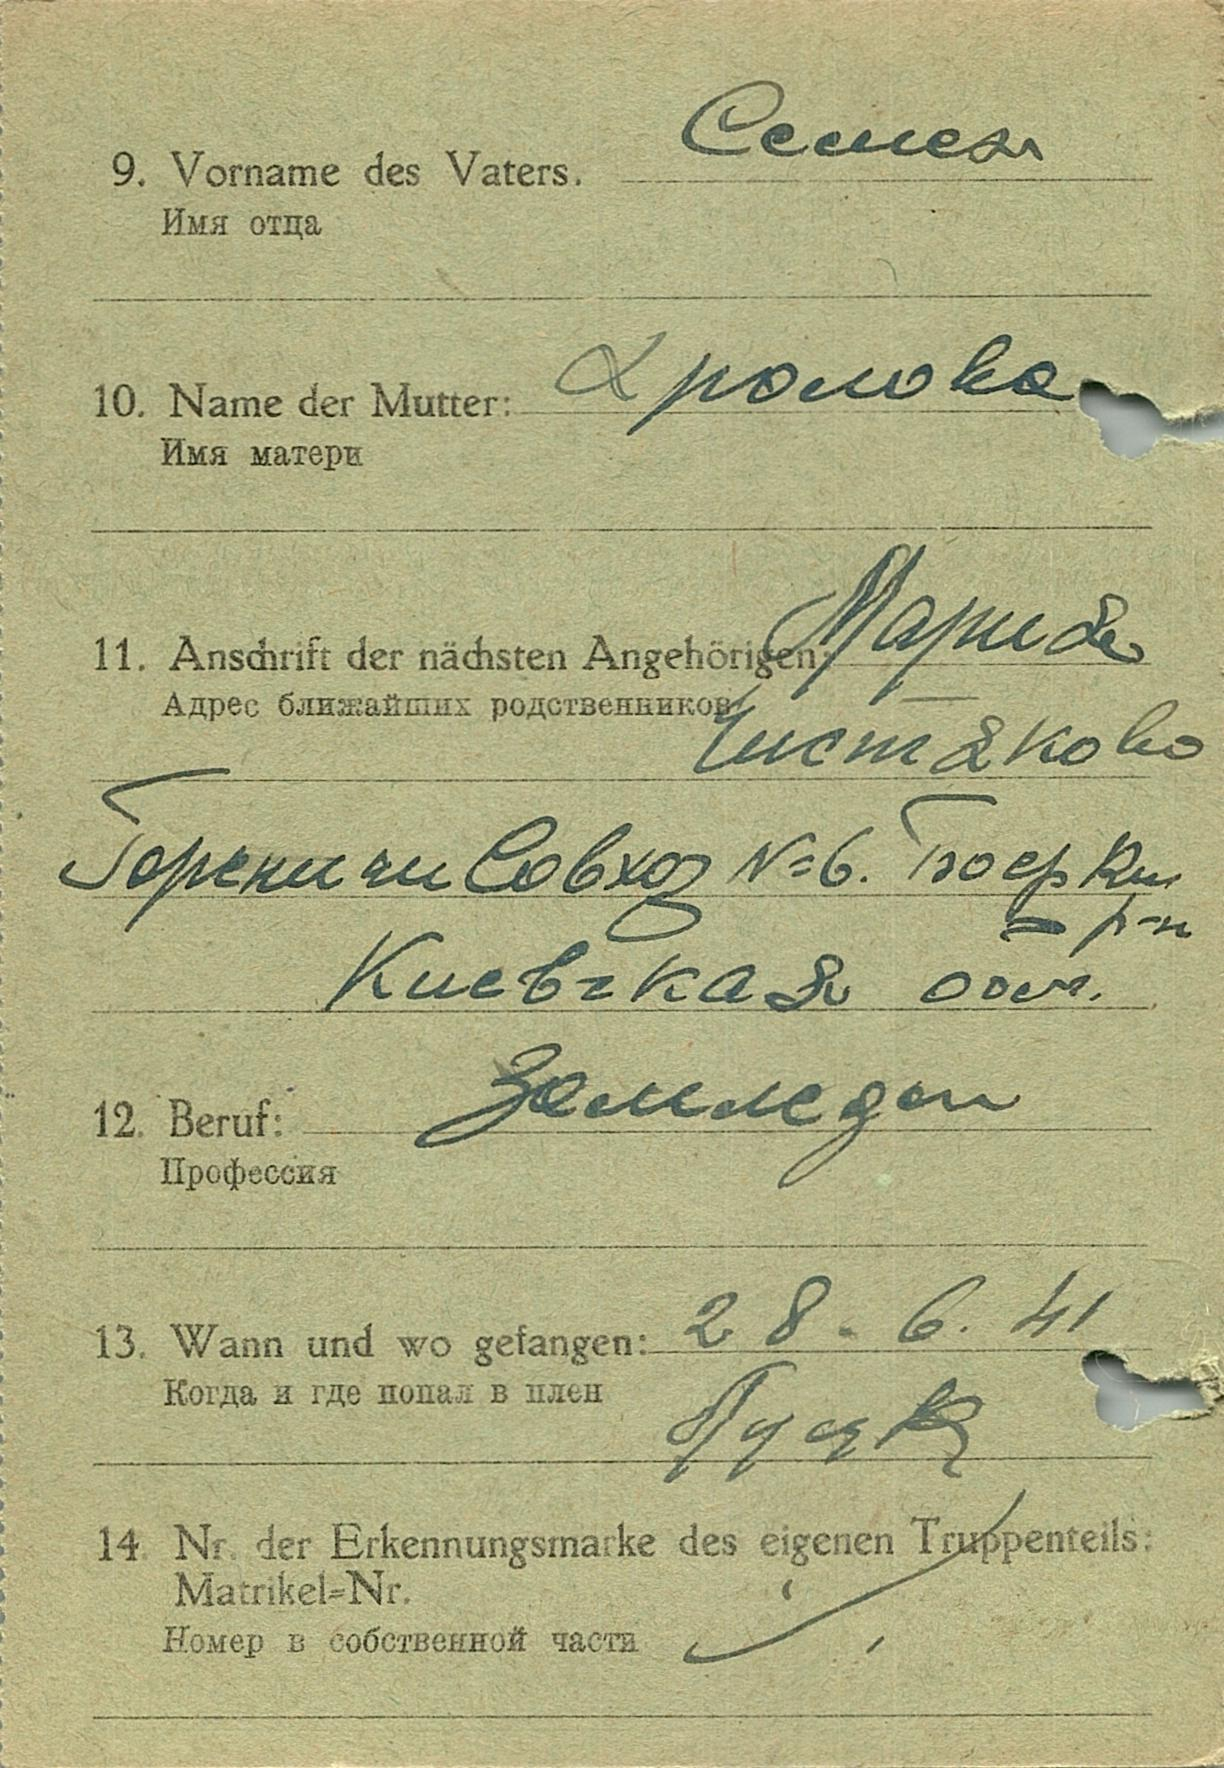 9. Vorname des Vaters. Семен
Имя отца
10. Name der Mutter: Хромова
Имя матери
11. Anschrift der nächsten Angehörigen: Мария
Адрес ближайших родственников Чистякова
Гореничи Совхоз №6.
р-н
Киевская обл.
12. Beruf: Земледел
Профессия
13. Wann und wo gefangen: 28. 6. 41
Когда и где попал в плен Луцк
14. Nr. der Erkennungsmarke des eigenen Truppenteils:
Matrikel=Nr.
Номер в собственной части